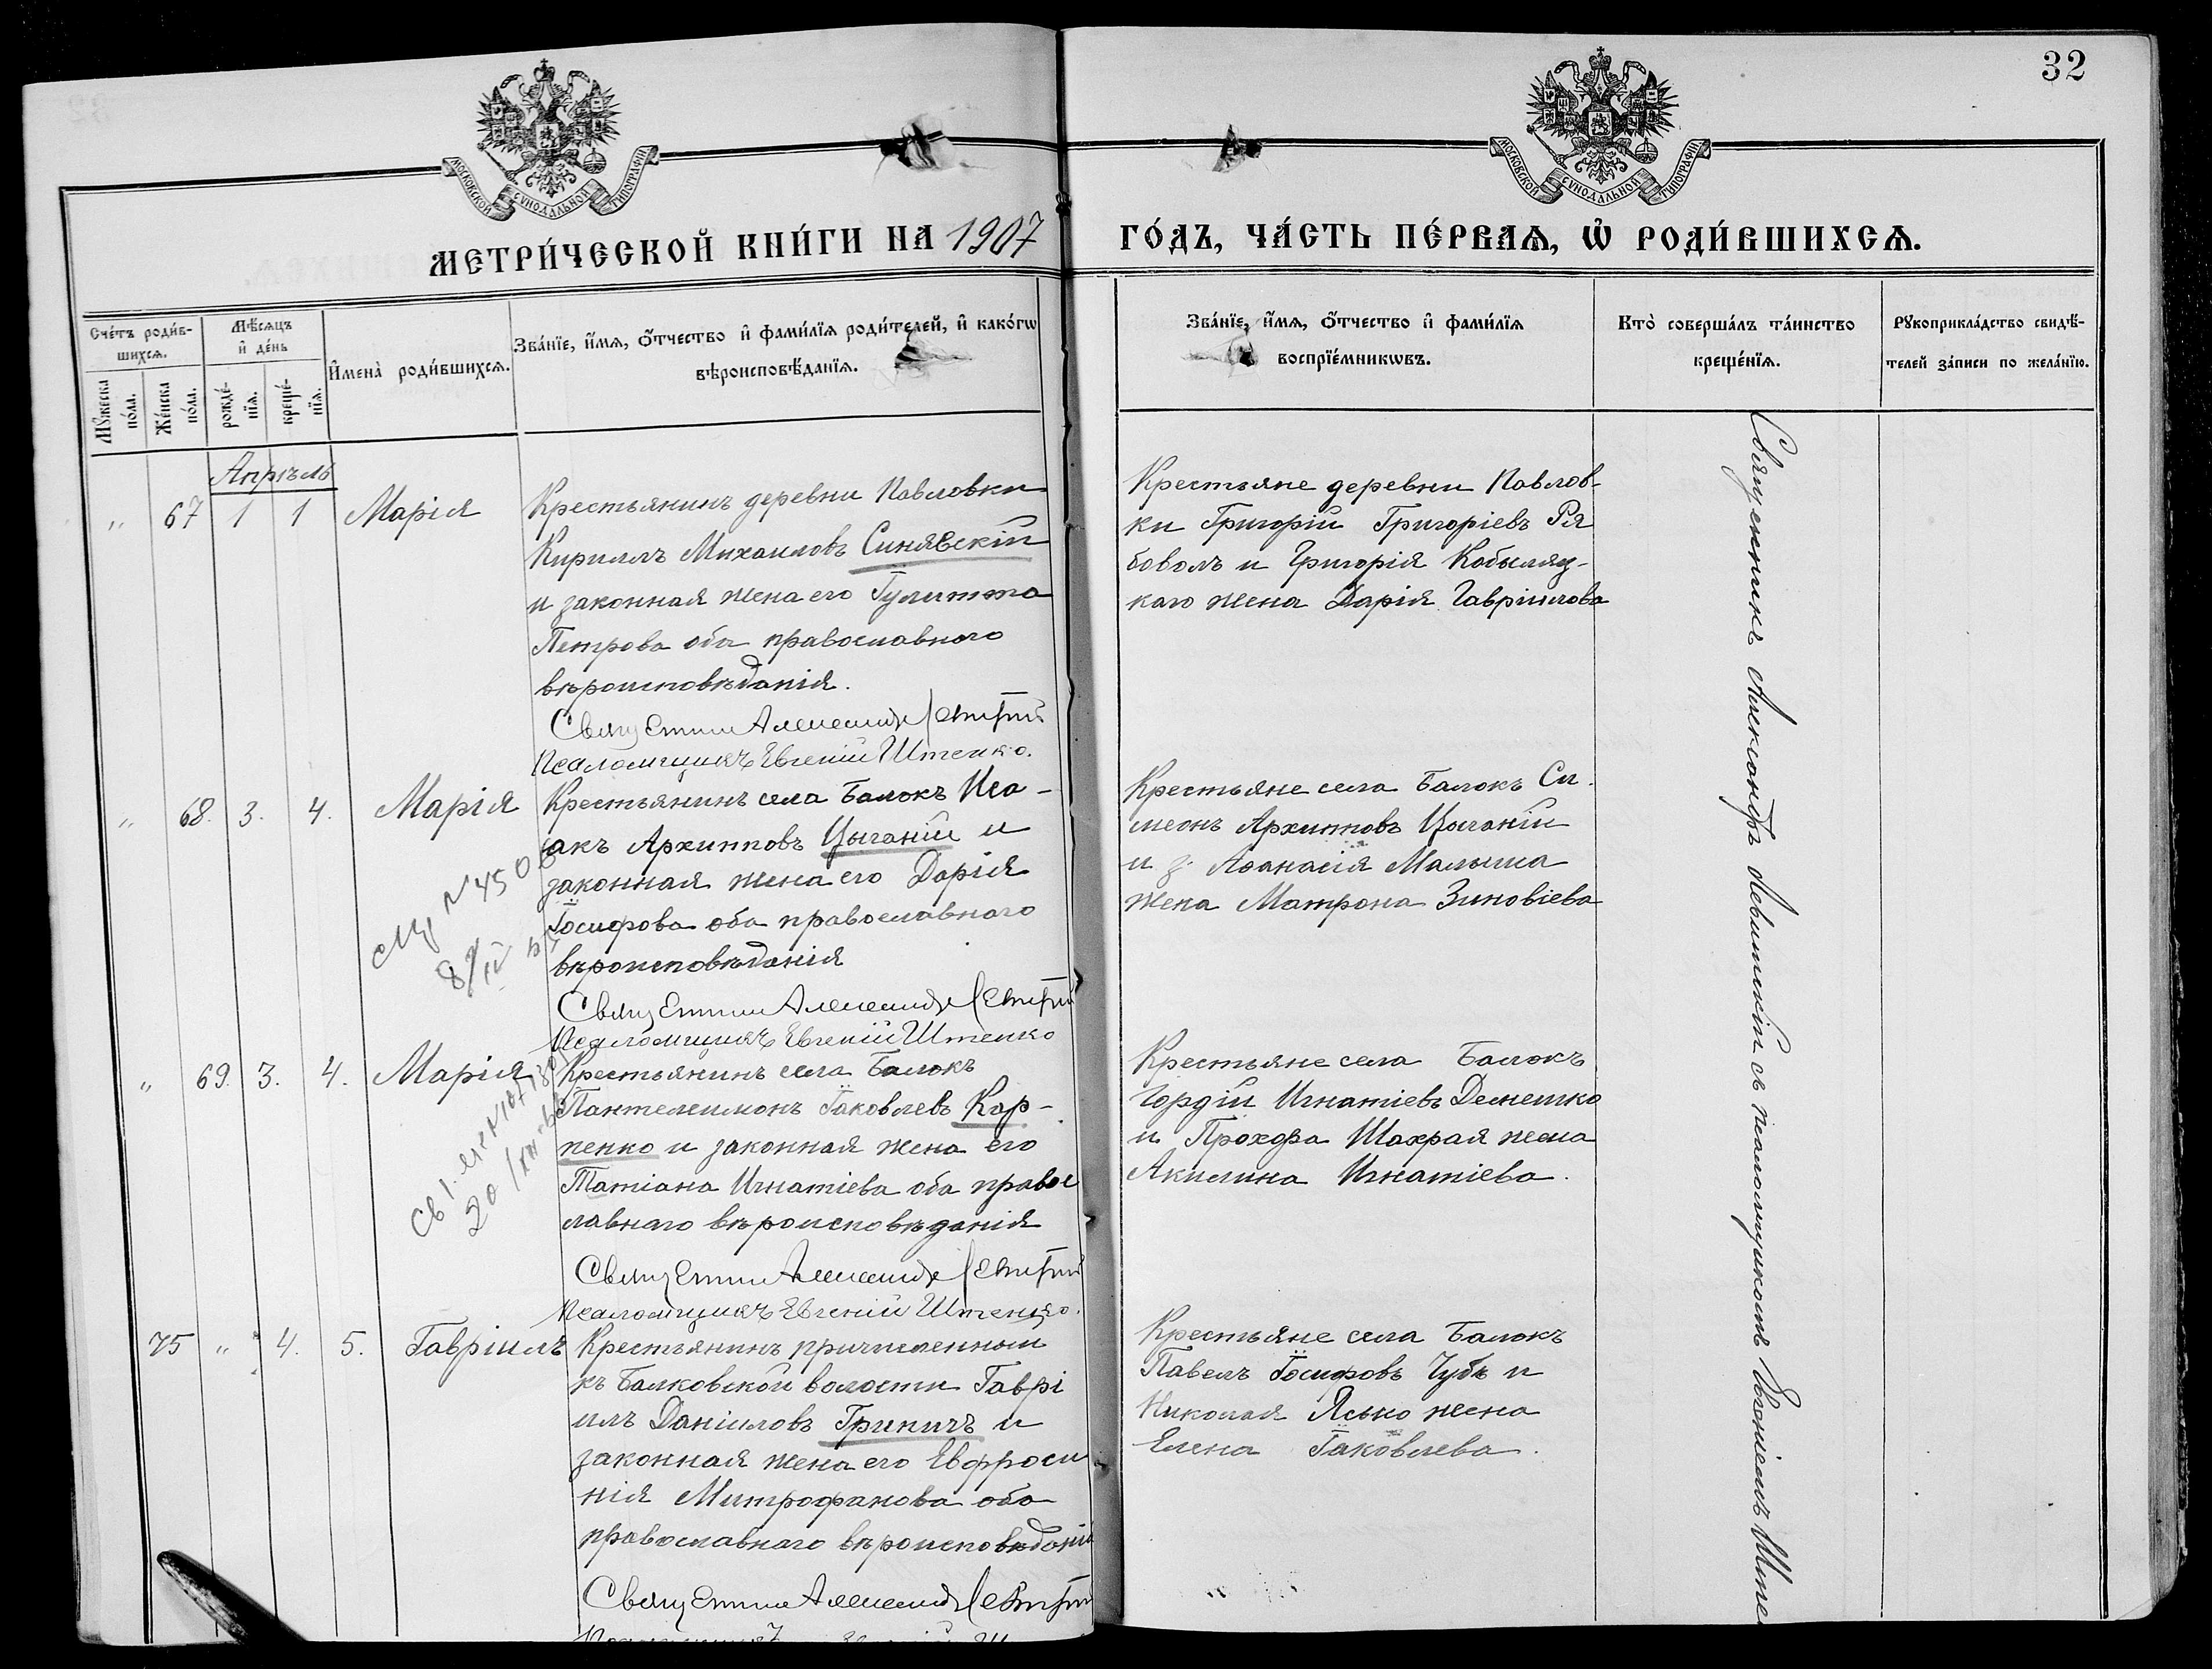 32
МОСКОВСКОЙ СѴНОДАЛЬНОЙ ТИПОГРАФІИ
МОСКОВСКОЙ СѴНОДАЛЬНОЙ ТИПОГРАФІИ
МЕТРИ́ЧЕСКОЙ КНИ́ГИ НА 1907
ГО́ДЪ, ЧА́СТЬ ПЕ́РВАѦ, Ѡ҆ РОДИ́ВШИХСѦ.
Сче́тъ роди́в-
шихсѧ.
Мꙋжеска
по́ла.
Же́нска
по́ла.
Мѣ́сѧцъ
и҆ де́нь
рожде́-
нїѧ.
креще́-
нїѧ.
И҆мена̀ роди́вшихсѧ.
Зва́нїе, и҆́мѧ, ѻ҆́тчество и҆ фами́лїѧ роди́телей, и҆ како́гѡ
вѣроисповѣ́данїѧ.
Зва́нїе, и҆́мѧ, ѻ҆́тчество и҆ фами́лїѧ
воспрїе́мникѡвъ.
Кто̀ соверша́лъ та́инство
креще́нїѧ.
Рꙋкоприкла́дство свидѣ́-
телей за́писи по жела́нїю.
Апрѣль
" 67 1 1 Марія
Крестьянинъ деревни Павловки
Кириллъ Михаиловъ Синявскій
и законная жена его Іулитта
Петрова оба православнаго
вѣроисповѣданія.
Священникъ Александръ Левитскій
Псаломщикъ Евгеній Штепко.
Крестьяне деревни Павлов-
ки Григорій Григоріевъ Ря
боволъ и Григорія Кобыляц-
каго жена Дарія Гавріилова
" 68. 3. 4. Марія
Крестьянинъ села Балокъ Иса-
акъ Архипповъ Цыганій и
законная жена его Дарія
Іосифова оба православнаго
вѣроисповѣданія
Священникъ Александръ Левитскій
Псаломщикъ Евгеній Штепко
Крестьяне села Балокъ Си
меонъ Архипповъ Цыганій
и Аѳанасія Малыша
жена Матрона Зиновіева
" 69. 3. 4. Марія
Крестьянинъ села Балокъ
Пантелеимонъ Іаковлевъ Кар-
пенко и законная жена его
Татіана Игнатіева оба правос
лавнаго вѣроисповѣданія
Священникъ Александръ Левитскій
Псаломщикъ Евгеній Штепко.
Крестьяне села Балокъ
Гордій Игнатіевъ Демешко
и Прохора Шахрая жена
Акилина Игнатіева.
75 " 4. 5. Гавріилъ
Крестьянинъ причисленный
къ Балковской волости Гаврі
илъ Даніиловъ Гриничъ и
законная жена его Евфроси
нія Митрофанова оба
православнаго вѣроисповѣданія
Священникъ Александръ Левитскій
Крестьяне села Балокъ
Павелъ Іосифовъ Чубъ и
Николая Ясько жена
Елена Іаковлева.
Священникъ Александръ Левитскій съ псаломщикомъ Евгеніемъ Штеп